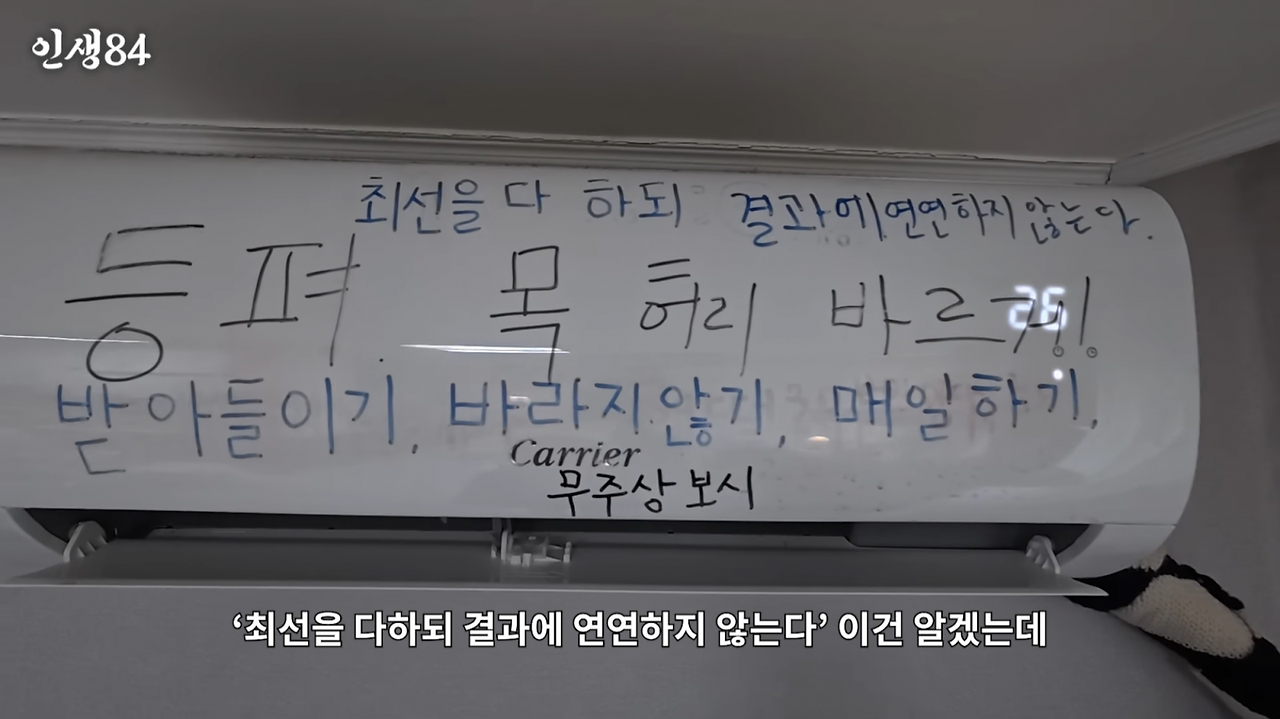 인생84
최선을 다 하되 결과에 연연하지 않는다.
등 펴. 목 허리 바르게!!
26
받아들이기. 바라지않기, 매일하기.
Carrier
무주상 보시
‘최선을 다하되 결과에 연연하지 않는다’ 이건 알겠는데